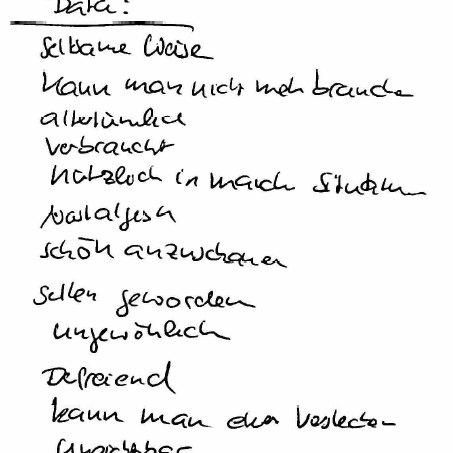 Data:
Seltsame Weise
kann man nicht mehr brauche
altertümlich
verbraucht
nützlich in manch Situation
nostalgisch
schön anzuschauen
selten geworden
ungewöhnlich
Befreiend
kann man eher verstecken